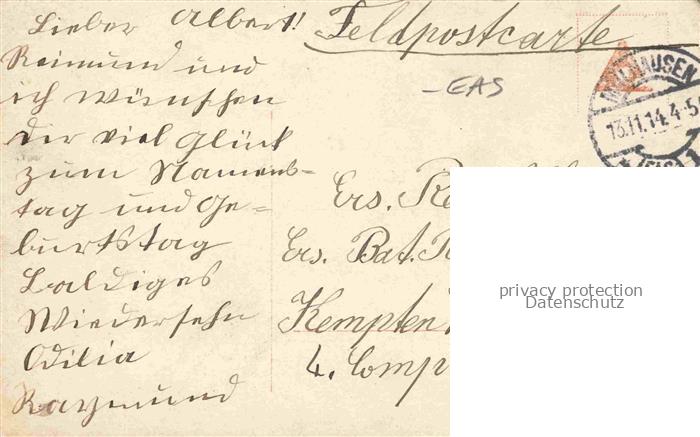 Lieber Albert!
Reimund und
ich wünschen
dir viel Glück
zum Namens-
tag und Ge=
burtstag
Baldiges
Wiedersehn
Odilia
Raymund
Feldpostcarte
-EAS
MÜLHAUSEN
13.11.14.4-5
(ELS.)
Ers.
Ers. Bat.
Kempten
4. Comp
privacy protection
Datenschutz